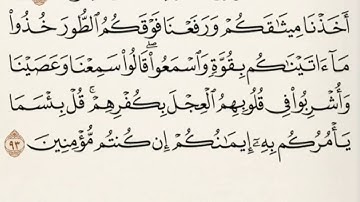 أَخَذْنَا مِيثَٰقَكُمْ وَرَفَعْنَا فَوْقَكُمُ ٱلطُّورَ خُذُوا۟
مَآ ءَاتَيْنَٰكُم بِقُوَّةٍ وَٱسْمَعُوا۟ ۖ قَالُوا۟ سَمِعْنَا وَعَصَيْنَا
وَأُشْرِبُوا۟ فِى قُلُوبِهِمُ ٱلْعِجْلَ بِكُفْرِهِمْ ۚ قُلْ بِئْسَمَا
يَأْمُرُكُم بِهِۦٓ إِيمَٰنُكُمْ إِن كُنتُم مُّؤْمِنِينَ ٩٣